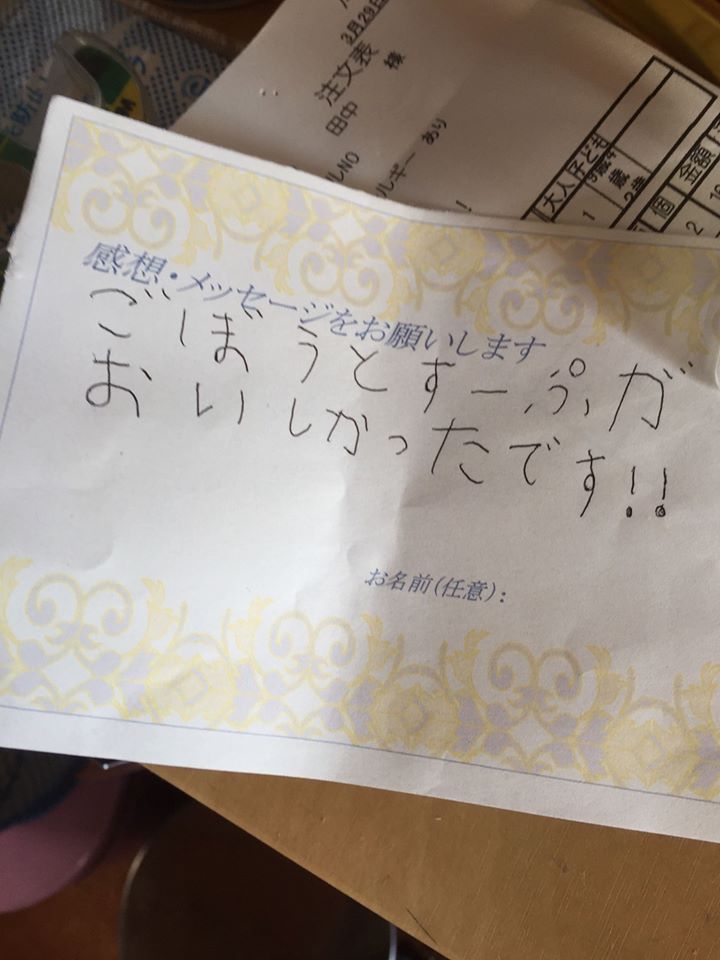 3月29日
注文表
田中 様
ルNO
ルギー あり
!
大人 子ども
1
歳
2歳
個 金額
2
感想・メッセージをお願いします
ごぼうとすーぷが
おいしかったです!!
お名前(任意):